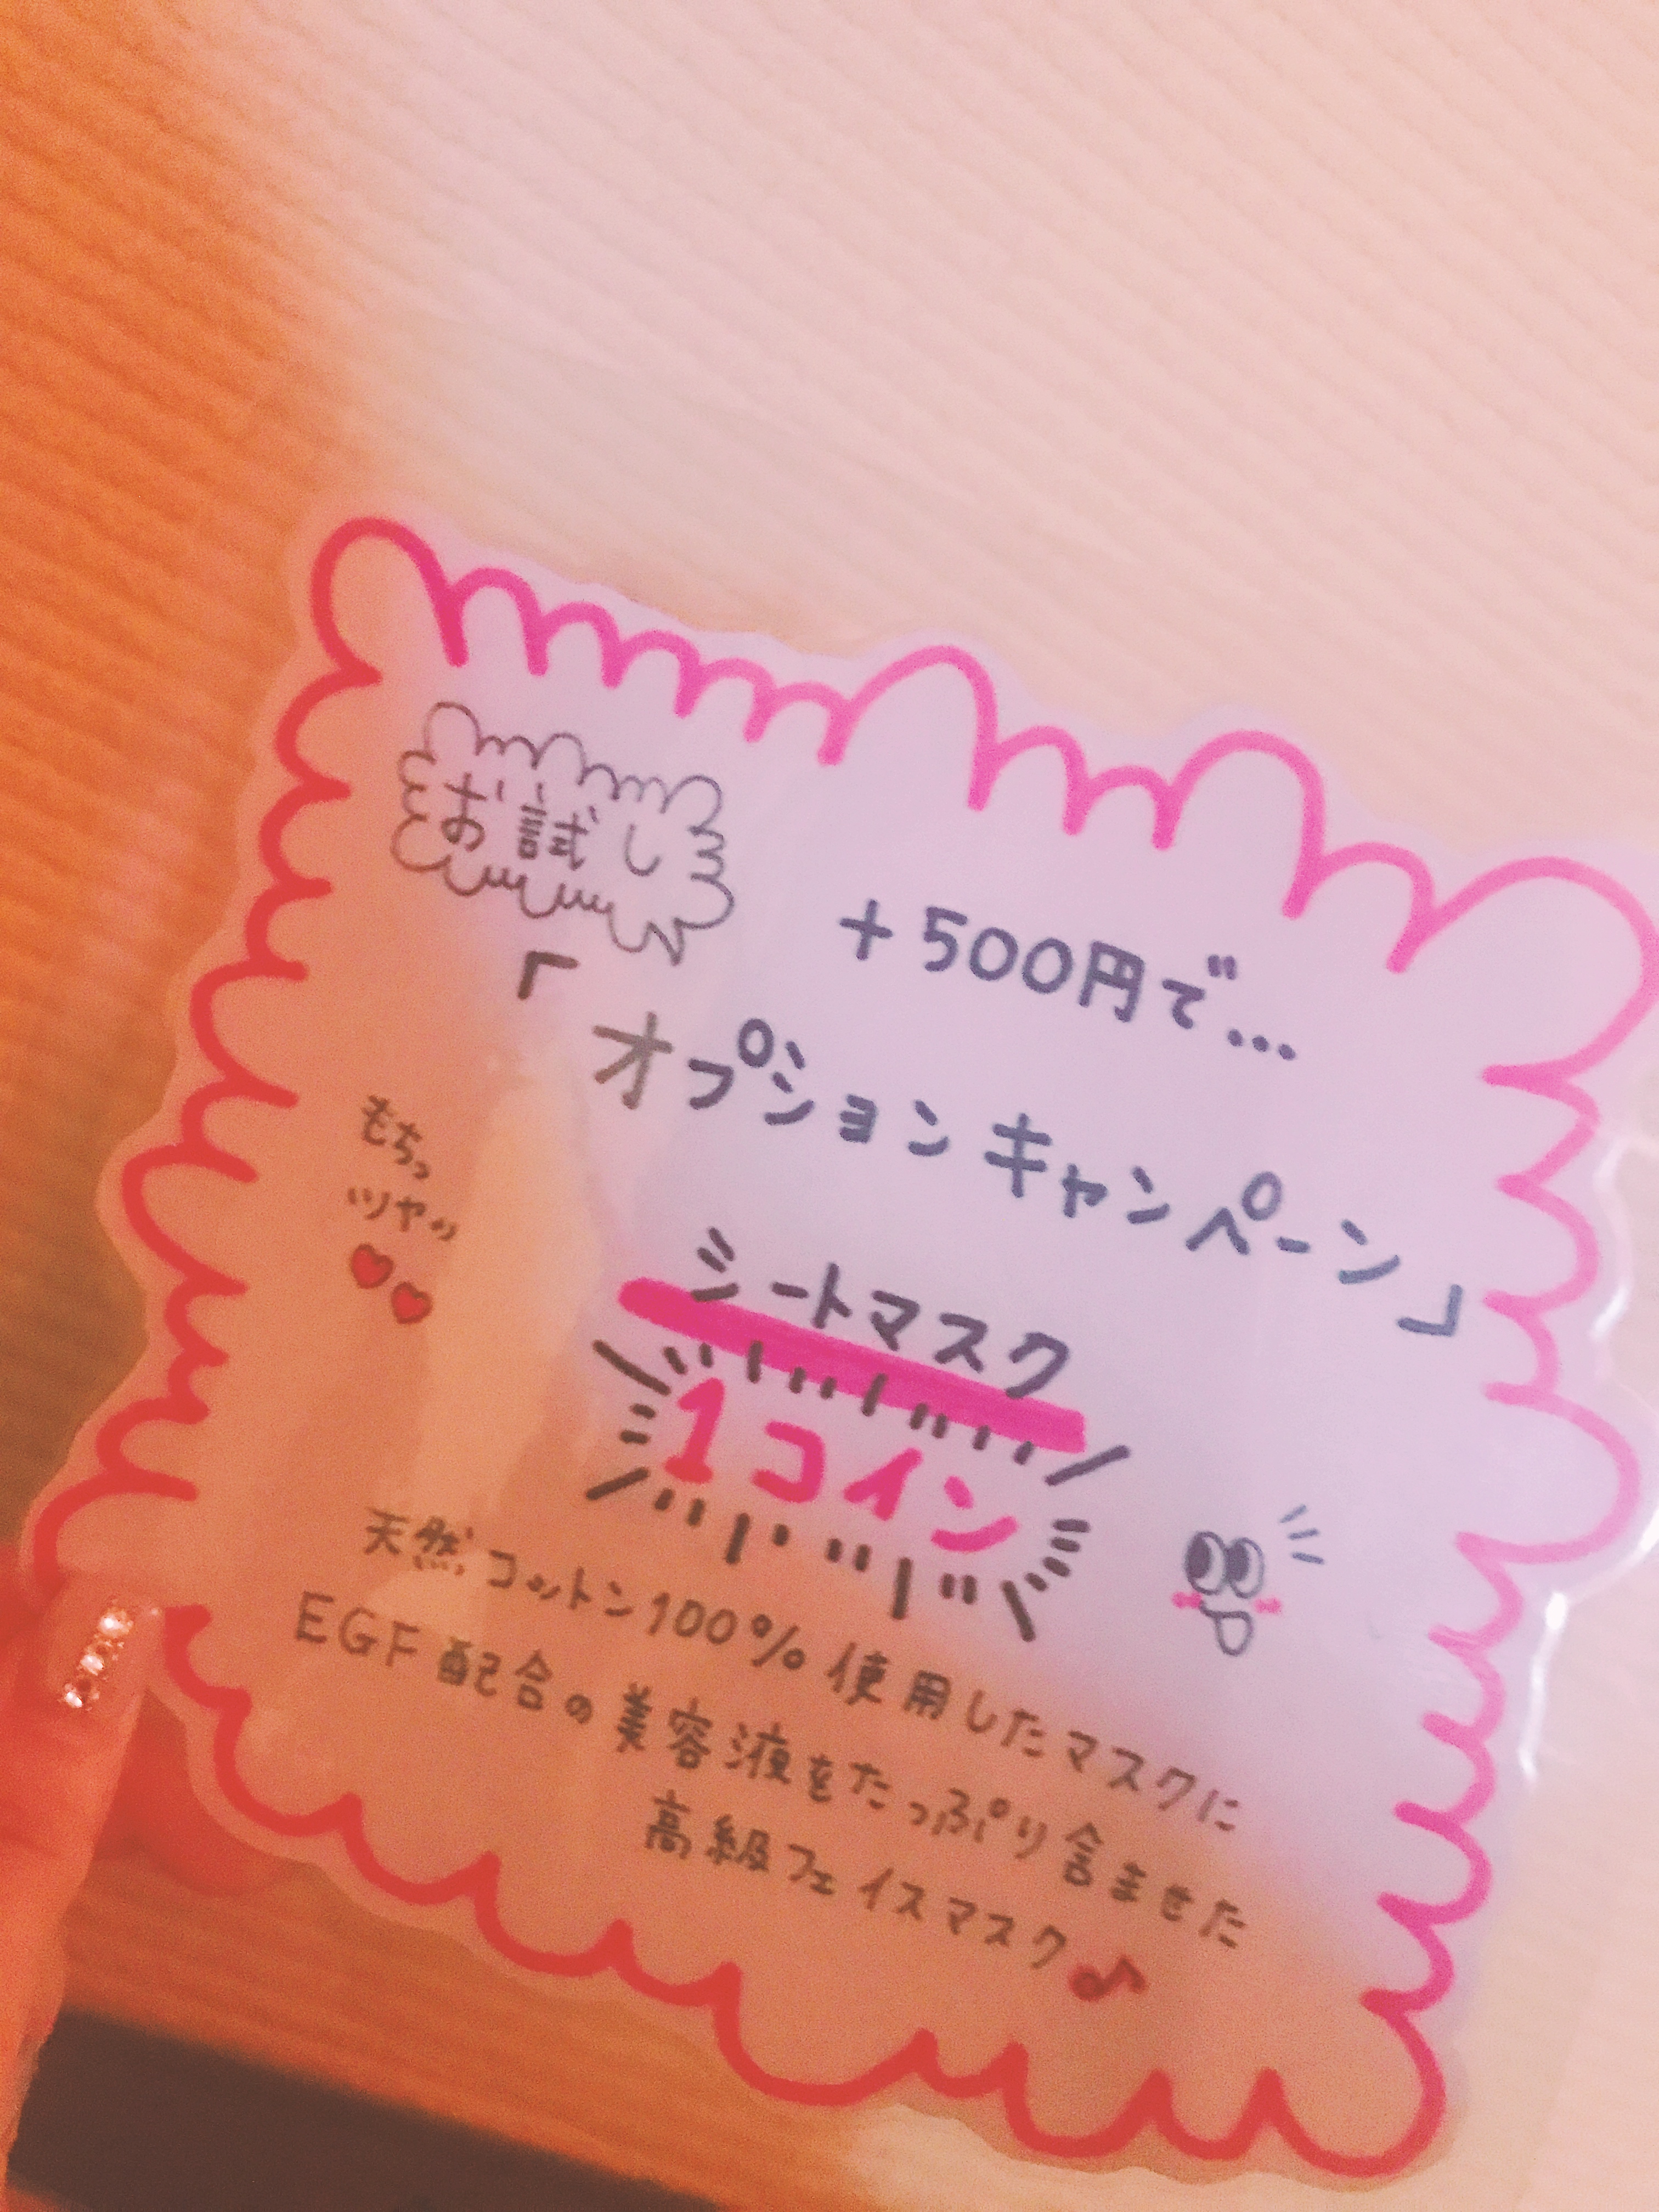 お試し
+500円で…
「オプションキャンペーン」
もちっ
ツヤッ
シートマスク
1コイン
天然コットン100%使用したマスクに
EGF配合の美容液をたっぷり含ませた
高級フェイスマスク♪